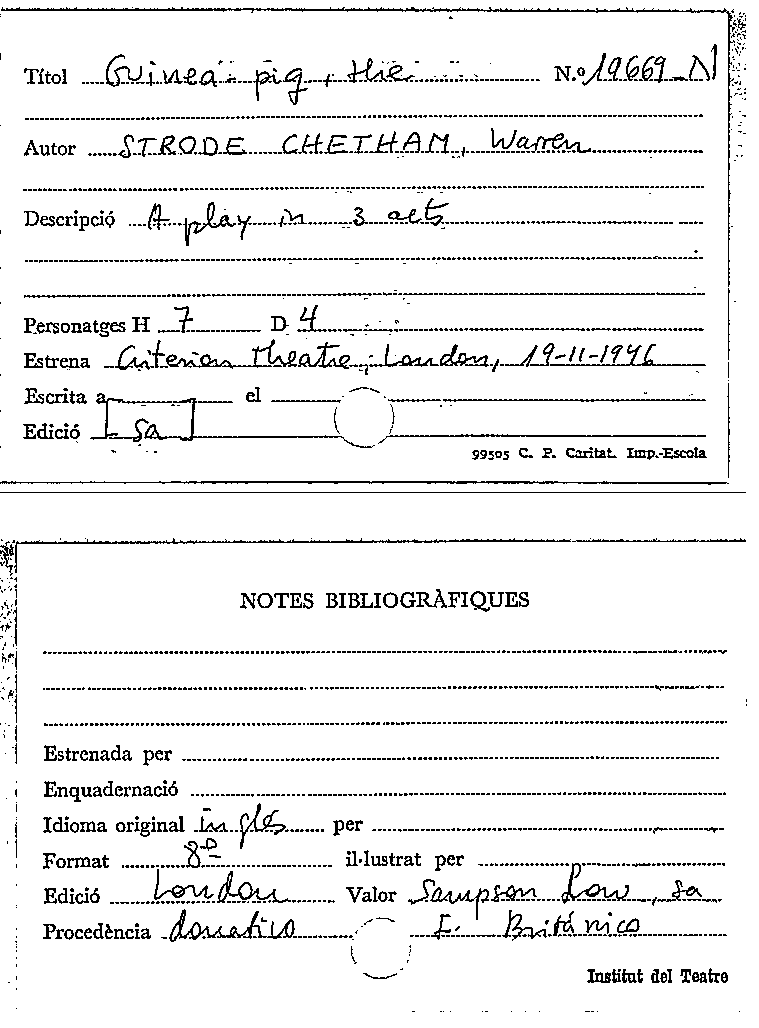 Títol Guinea-pig, the N.º 19669-N
Autor STRODE CHETHAM, Warren
Descripció A play in 3 acts
Personatges H 7 D 4
Estrena Criterion Theatre; London, 19-11-1946
Escrita a el
Edició [sa]
99505 C. P. Caritat. Imp.-Escola
NOTES BIBLIOGRÀFIQUES
Estrenada per
Enquadernació
Idioma original inglés per
Format 8º il·lustrat per
Edició London Valor Sampson Low, sa
Procedència donativo I. Británico
Institut del Teatre